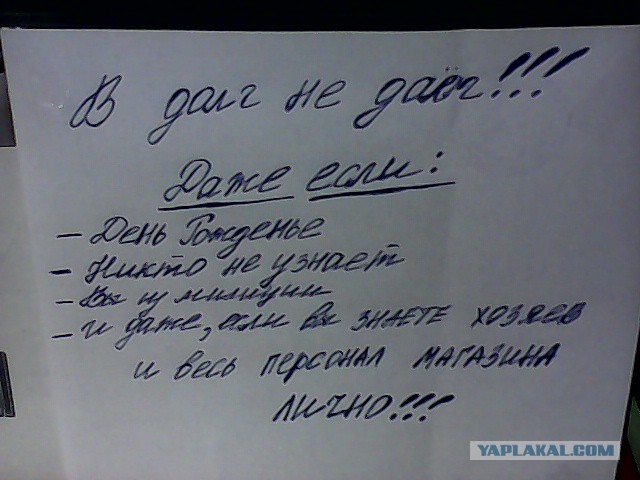 В долг не даём!!!
Даже если:
- День Рожденье
- Никто не узнает
- Вы из милиции
- и даже, если вы ЗНАЕТЕ ХОЗЯЕВ
и весь ПЕРСОНАЛ МАГАЗИНА
ЛИЧНО!!!
YAPLAKAL.COM